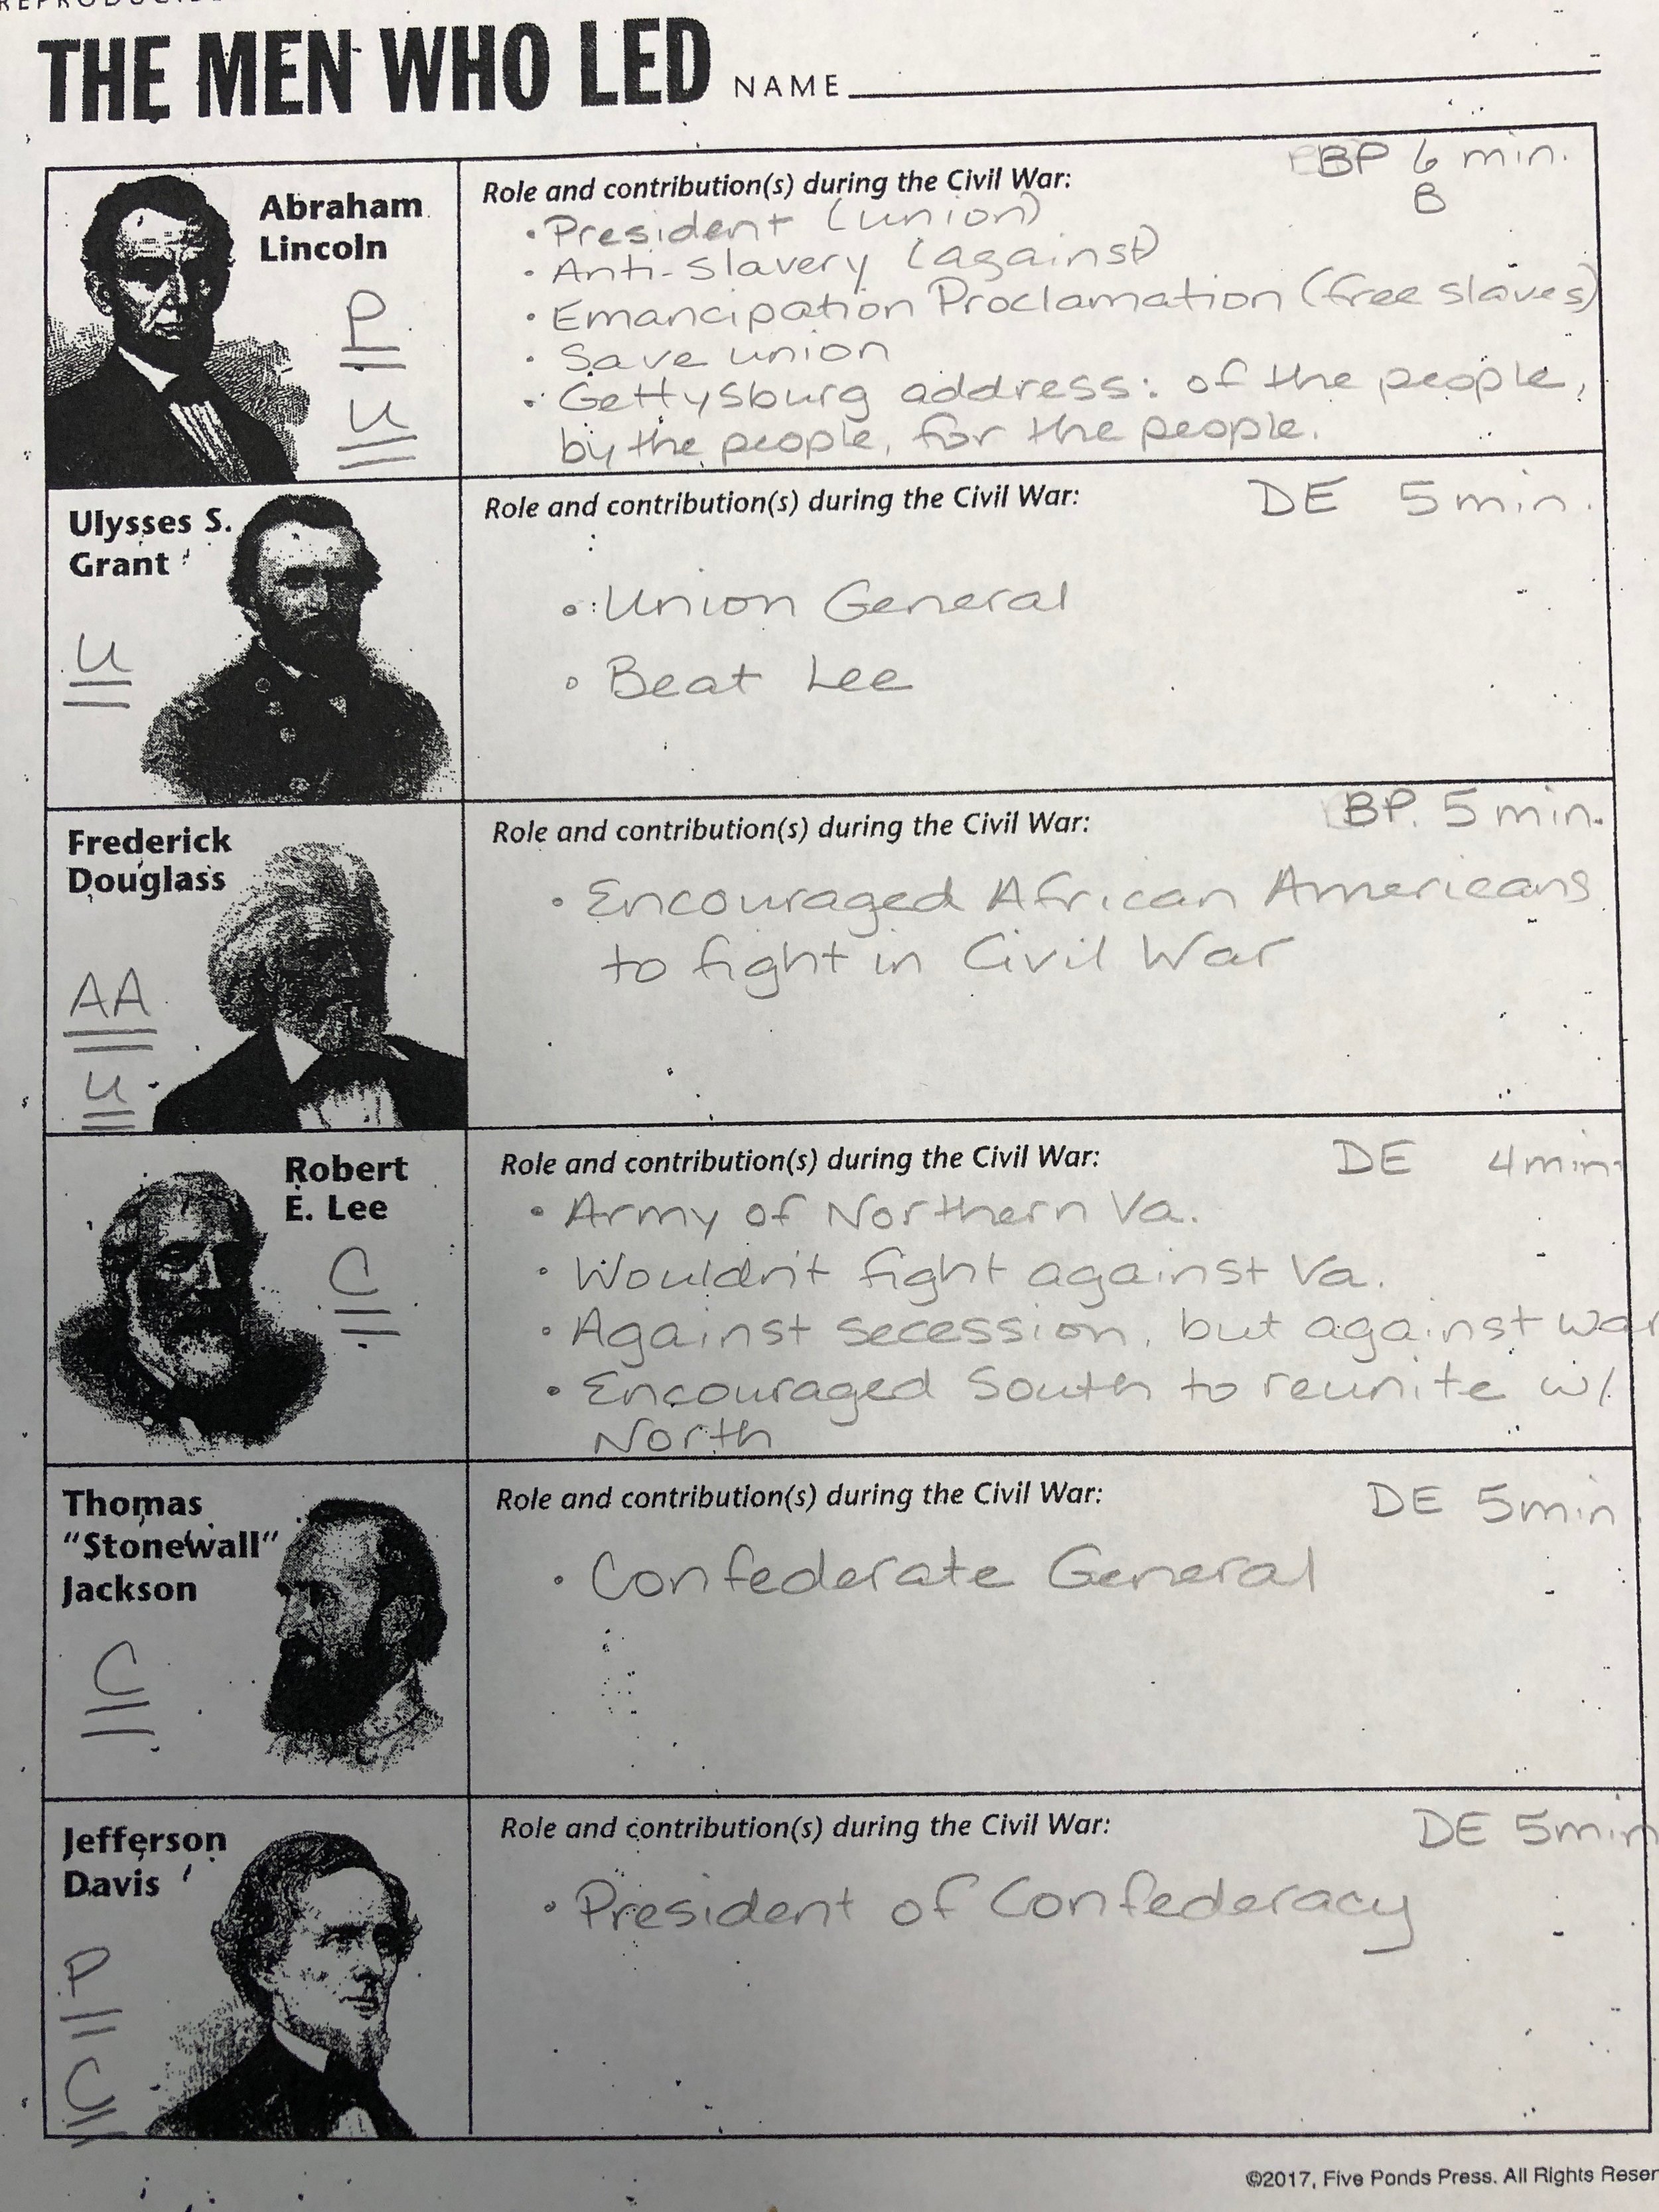 THE MEN WHO LED NAME
Abraham
Lincoln
P
U
Role and contribution(s) during the Civil War:
BP 6 min.
B
• President (union)
• Anti-slavery (against)
• Emancipation Proclamation (free slaves)
• Save union
• Gettysburg address: of the people,
by the people, for the people.
Ulysses S.
Grant
U
Role and contribution(s) during the Civil War:
DE 5 min.
• Union General
• Beat Lee
Frederick
Douglass
AA
U
Role and contribution(s) during the Civil War:
BP. 5 min.
• Encouraged African Americans
to fight in Civil War
Robert
E. Lee
C
Role and contribution(s) during the Civil War:
DE 4 min.
• Army of Northern Va.
• Wouldn't fight against Va.
• Against secession, but against war
• Encouraged South to reunite w/
North
Thomas
"Stonewall"
Jackson
C
Role and contribution(s) during the Civil War:
DE 5 min
• Confederate General
Jefferson
Davis
P
C
Role and contribution(s) during the Civil War:
DE 5 min
• President of Confederacy
©2017, Five Ponds Press. All Rights Reser